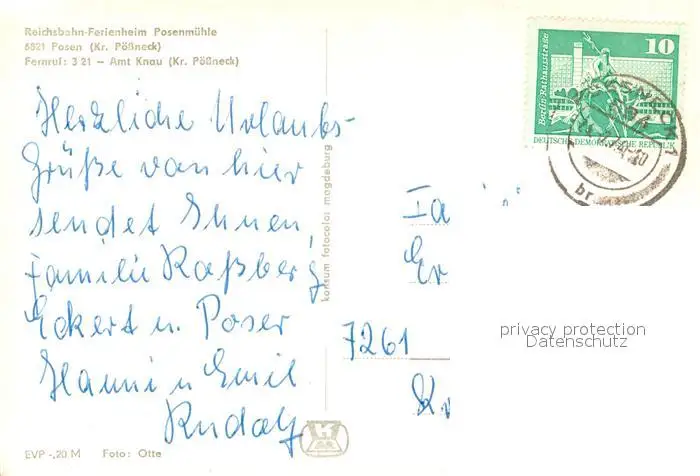 Reichsbahn-Ferienheim Posenmühle
6821 Posen (Kr. Pößneck)
Fernruf: 3 21 — Amt Knau (Kr. Pößneck)
Herzliche Urlaubs-
Grüße von hier
sendet Ihnen,
Familie Raßberg
Eckert u. Poser
Hanni u Emil
Rudolf
EVP -,20 M Foto: Otte
konsum fotocolor magdeburg
10
Berlin-Rathausstraße
DEUTSCHE DEMOKRATISCHE REPUBLIK
Fa
Er
7261
Kr
privacy protection
Datenschutz